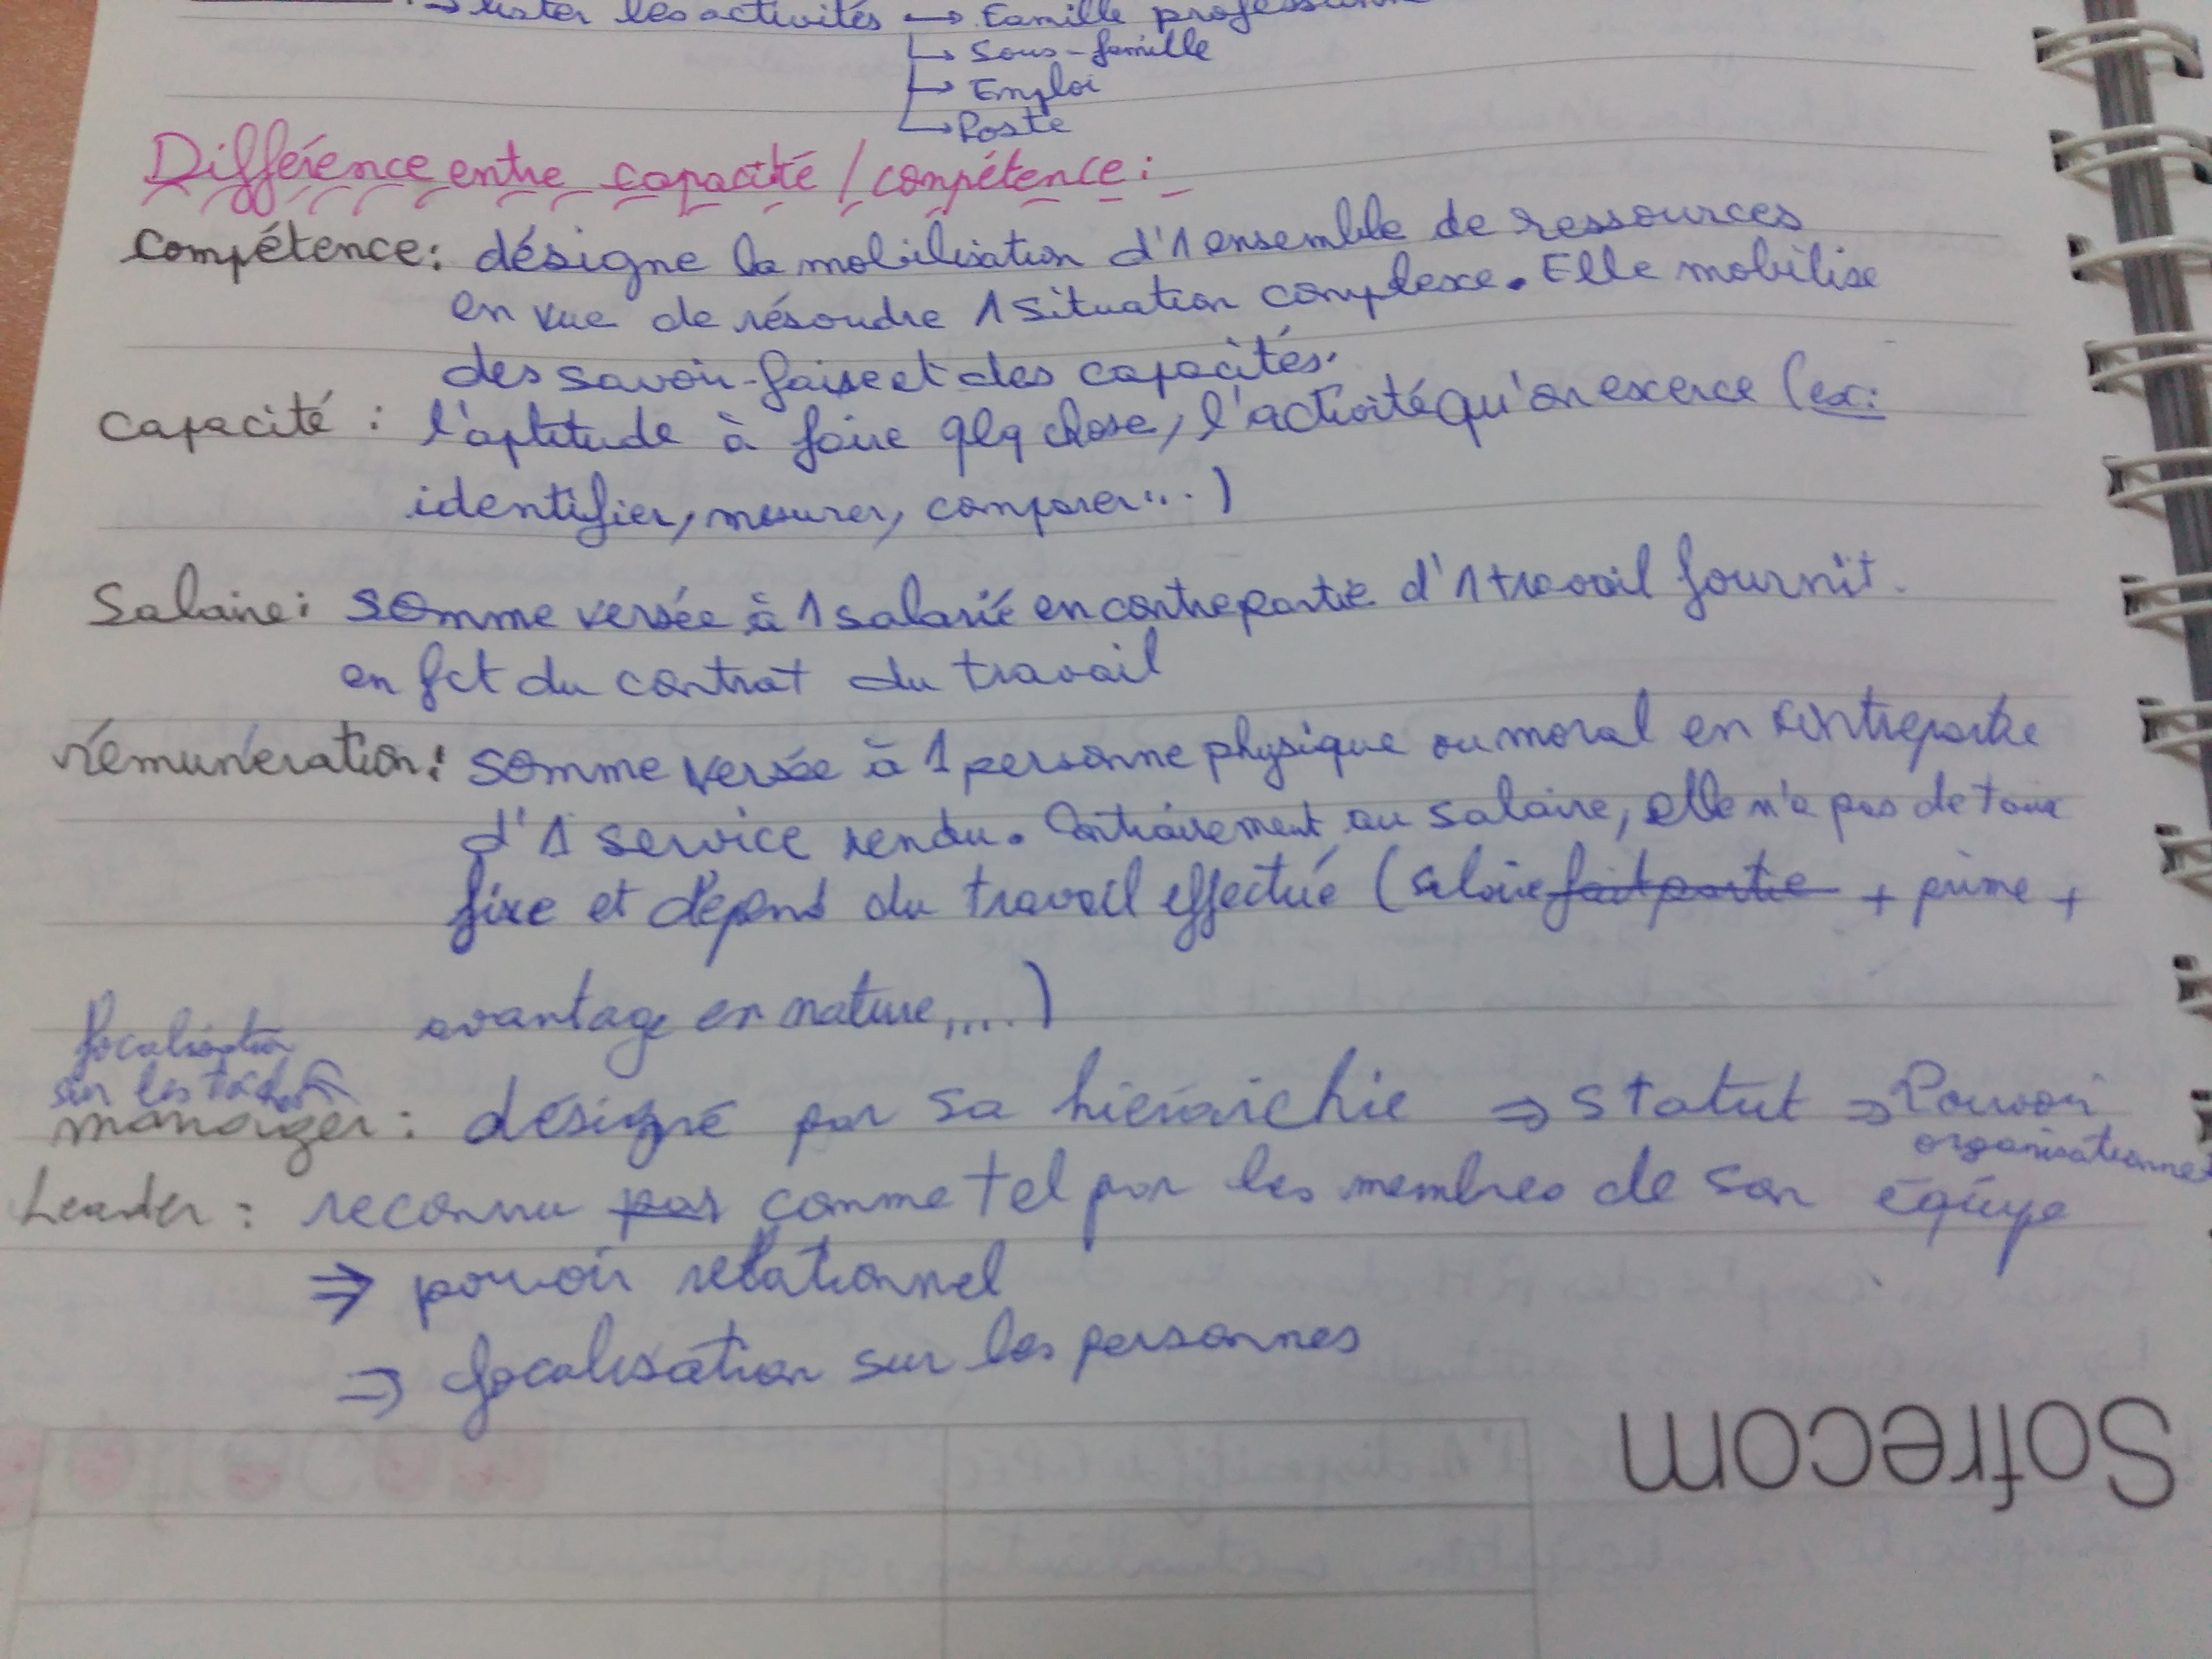 → lister les activités → Famille
→ Sous-famille
→ Emploi
→ Poste
Différence entre capacité / compétence :
compétence : désigne la mobilisation d'1 ensemble de ressources
en vue de résoudre 1 situation complexe. Elle mobilise
des savoir-faire et des capacités.
capacité : l'aptitude à faire qlq chose, l'activité qu'on exerce (ex:
identifier, mesurer, comparer...)
Salaire : somme versée à 1 salarié en contrepartie d'1 travail fournit.
en fct du contrat du travail
rémunération : somme versée à 1 personne physique ou moral en contrepartie
d'1 service rendu. Contrairement au salaire, elle n'a pas de taux
fixe et dépend du travail effectué (salaire fait partie + prime +
avantage en nature,...)
focalisation
sur les tâches
manager : désigné par sa hiérarchie ⇒ statut ⇒ Pouvoir
organisationnel
Leader : reconnu pas comme tel par les membres de son équipe
⇒ pouvoir relationnel
⇒ focalisation sur les personnes
Sofrecom